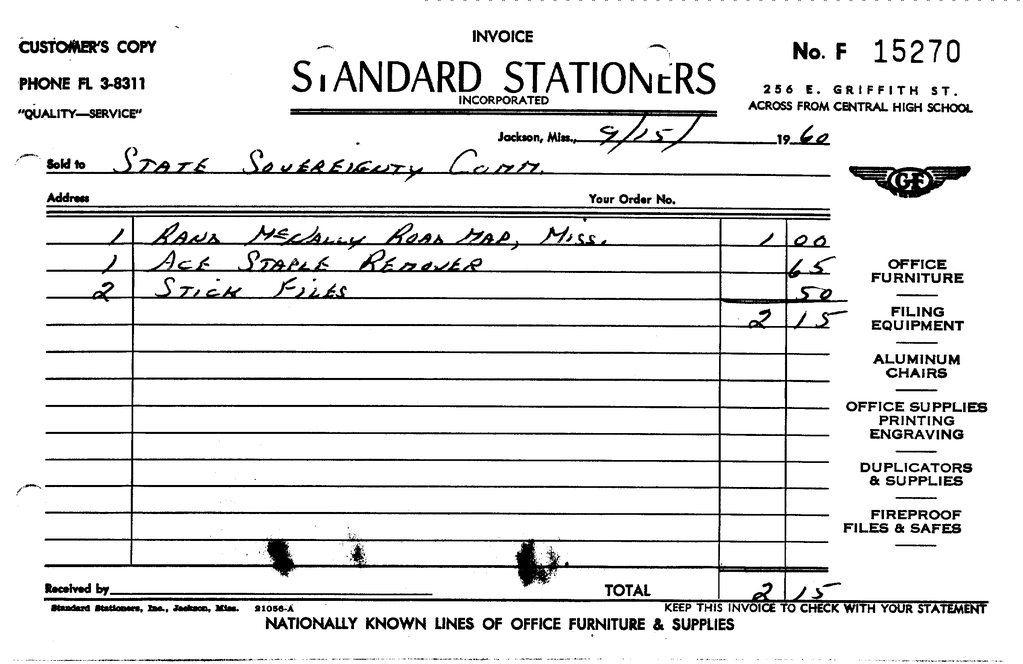 CUSTOMER'S COPY
INVOICE
No. F 15270
PHONE FL 3-8311
STANDARD STATIONERS
INCORPORATED
256 E. GRIFFITH ST.
"QUALITY—SERVICE"
ACROSS FROM CENTRAL HIGH SCHOOL
Jackson, Miss., 9/15/ 1960
Sold to STATE SOVEREIGNTY COMM.
GF
Address Your Order No.
1 RAND McNALLY ROAD MAP, MISS. 1 00
1 ACE STAPLE REMOVER 65
2 STICK FILES 50
2 15
OFFICE
FURNITURE
FILING
EQUIPMENT
ALUMINUM
CHAIRS
OFFICE SUPPLIES
PRINTING
ENGRAVING
DUPLICATORS
& SUPPLIES
FIREPROOF
FILES & SAFES
Received by TOTAL 2 15
Standard Stationers, Inc., Jackson, Miss. 21056-A KEEP THIS INVOICE TO CHECK WITH YOUR STATEMENT
NATIONALLY KNOWN LINES OF OFFICE FURNITURE & SUPPLIES